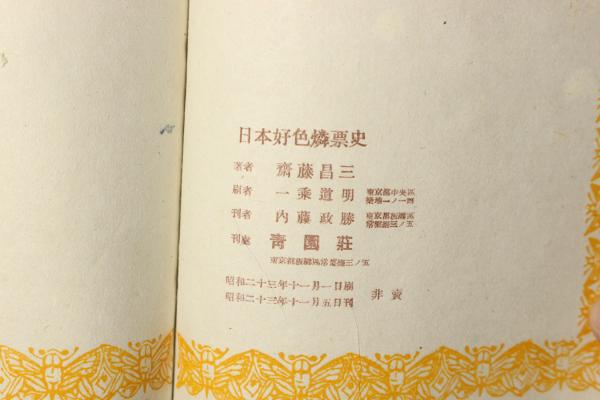 日本好色燐票史
著者 齋藤昌三
刷者 一乘道明 東京都中央區築地一ノ一四
刊者 內藤政勝 東京都板橋區常盤臺三ノ五
刊處 靑園莊
東京都板橋區常盤臺三ノ五
昭和二十三年十一月一日刷
昭和二十三年十一月五日刊 非賣